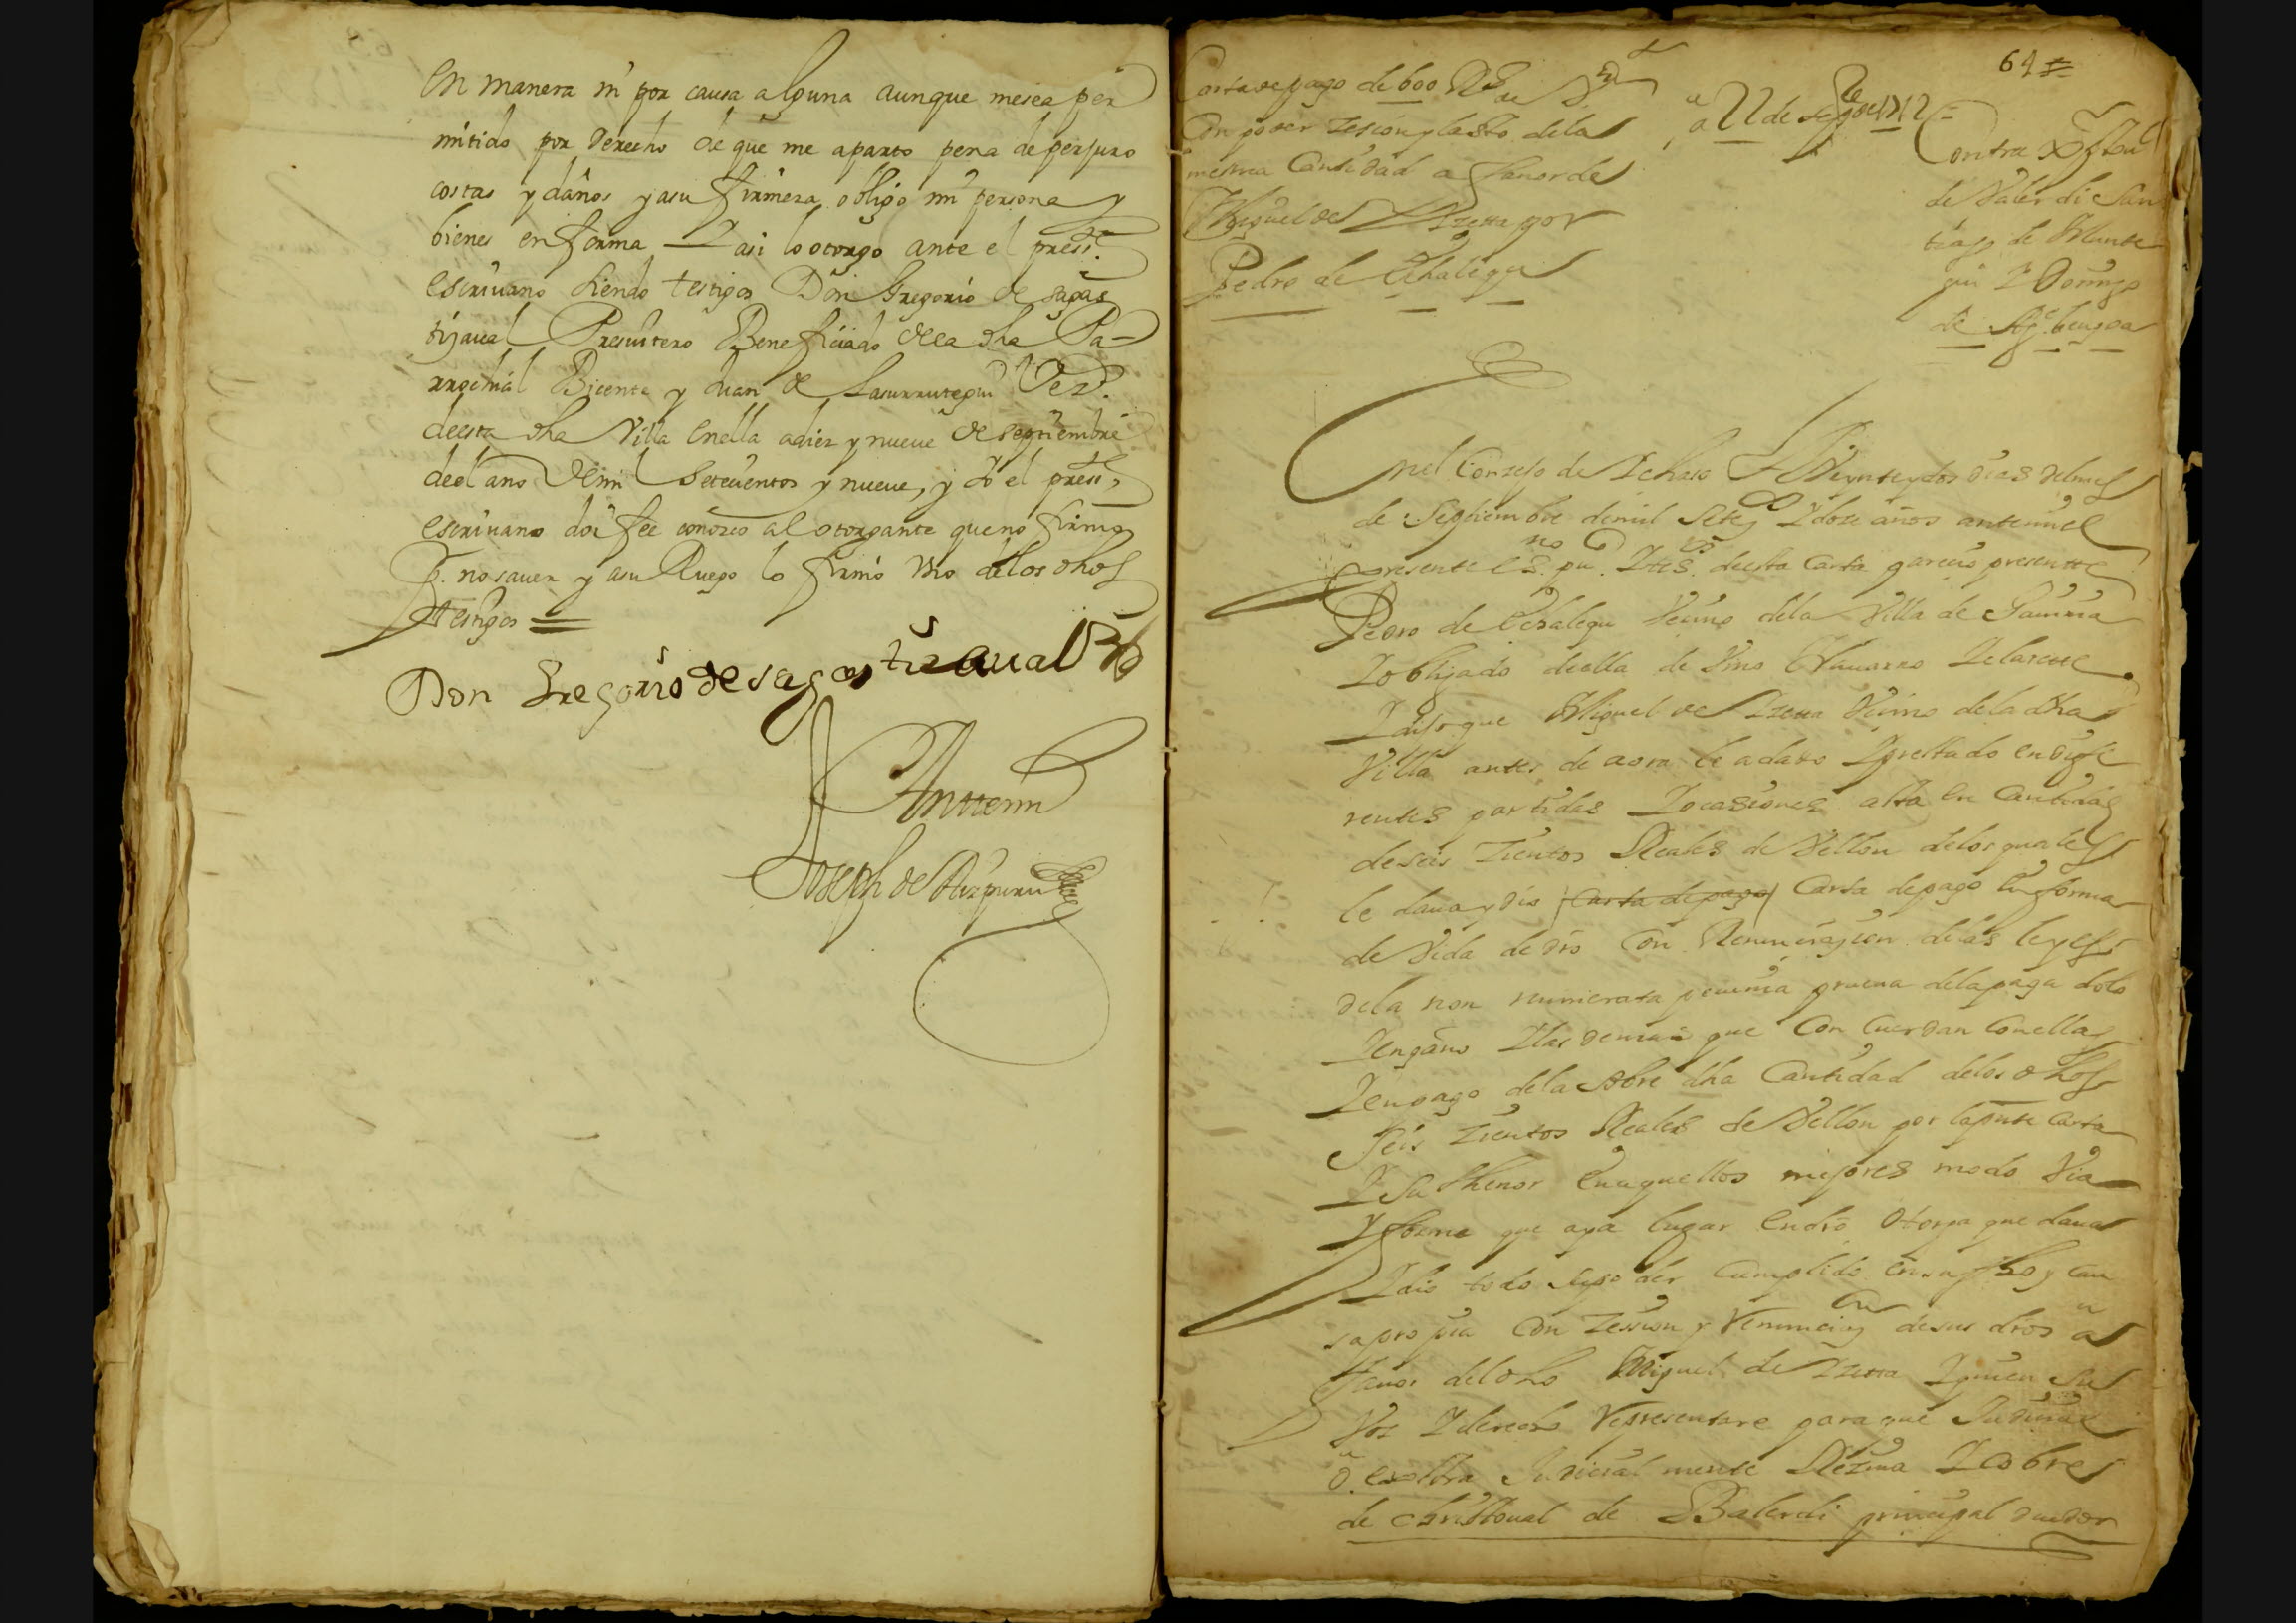 en manera ni por causa alguna aunque mesea per
mitido por derecho de que me aparto pena de perjuro
costas y daños y asu firmeza obligo mi persona y
bienes en forma Y asi lo otorgo ante el press.te
escriuano siendo testigos Don Gregorio de sagas
tiçaual Presuitero Beneficiado dela dha Pa-
rrochial Bicente y Juan de Lasurrutegui Vez.s
deesta dha Villa enella adiez y nueue de septiembre
deel año de mil setecientos y nueue, y Yo el press.te
escriuano doi fee conozco al otorgante que no firmo
p. no sauer y asu Ruego lo firmo Vno delos dhos
testigos =
Don Gregorio de sagastiçaual
Anttemi
Joseph de Aizpuru
64
Carta de pago de 600 R.s de V.on
Con poder zesion y lasto dela
mesma Cantidad a fauor de
Miguel de Yzetta por
Pedro de Echalequ
a 22 de sep.re de 1712 =
Contra Xptoual
de Valerdi San
tiago de Munte
gui Y Domingo
de Az.benzoa
En el Conzejo de Ichaso A Veynte y dos dias del mes
de Septiembre de mil Setez.s Y doze años antemi el
presente es.no pu.co Y tes.s deesta Carta parecio presente
Pedro de Echalequ Vecino dela Villa de Gauiria
Y obligado deella de Vino Nauarro Y clarete
Y dijo que Miguel de Yzetta Vecino dela dha
Villa antes de aora le a dado Y prestado en dife
rentes partidas Y ocasiones asta en Cantidad
de seis zientos Reales de Vellon delos quales
le daua y dio Carta de pago Carta depago en forma
de Vida de dro Con Renunciazion de las leyes
dela non numerata pecunia prueua dela paga dolo
Y engaño Y las demas que Con Cuerdan Conellas
Y en pago dela sobre dha Cantidad delos dhos
seis zientos Reales de Vellon por la pnte Carta
Y su thenor en aquellos mejores modo Via
Y forma que aya lugar en dro Otorga que daua
Y dio todo su poder Cumplido en su fho y Cau
sa propia Con zession y Renunciaz.on de sus dros a
fauor del dho Miguel de Yzetta Y quien su
Voz Y derecho Representare para que Judicial
o extra Judicial mente Reziua Y Cobre
de christoual de Balerdi principal deudor